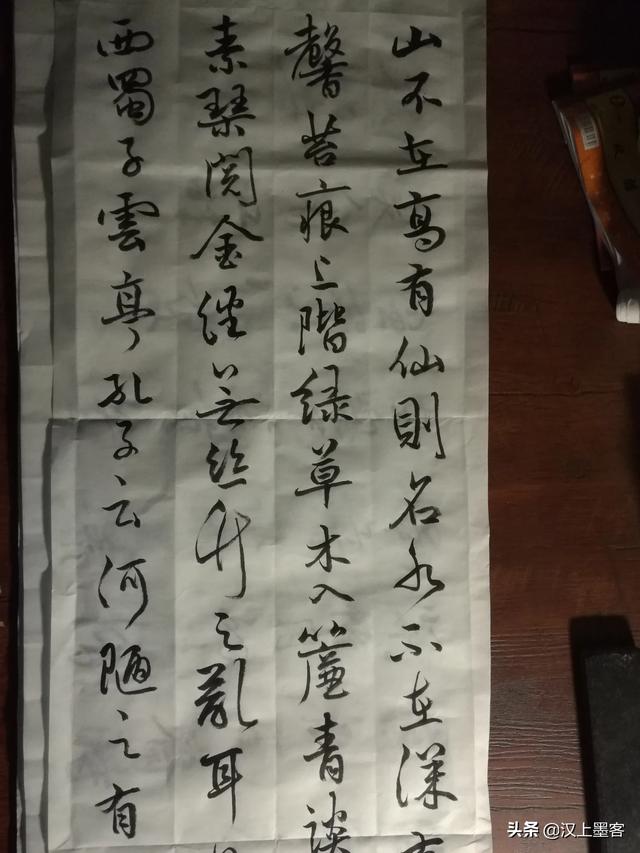 山不在高有仙則名水不在深
馨苔痕上階緑草木入簾青談
素琴閲金經無絲竹之亂耳
西蜀子雲亭孔子云何陋之有
头条 @汉上墨客